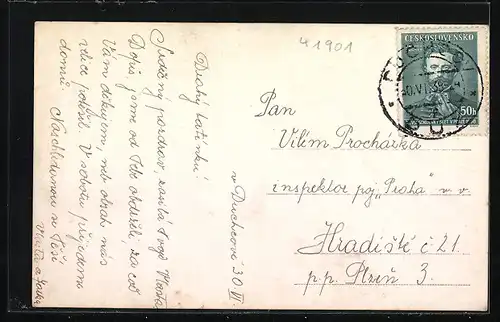 41901
ČESKOSLOVENSKO
50h
Pan
Vilém Procházka
inspektor poj. "Praha" v. v.
Hradiště č 21.
p.p. Plzeň 3.
v Duchcově 30. VI.
Drahý tatínku!
Srdečný pozdrav, zasílá Tvoje Vlasta
Dopis, jsme od Tebe obdrželi, za což
Vám děkujem, neb obsah nás
velice potěšil. V sobotu přijedem
domů. Nashledanou se těší
Vlasta a